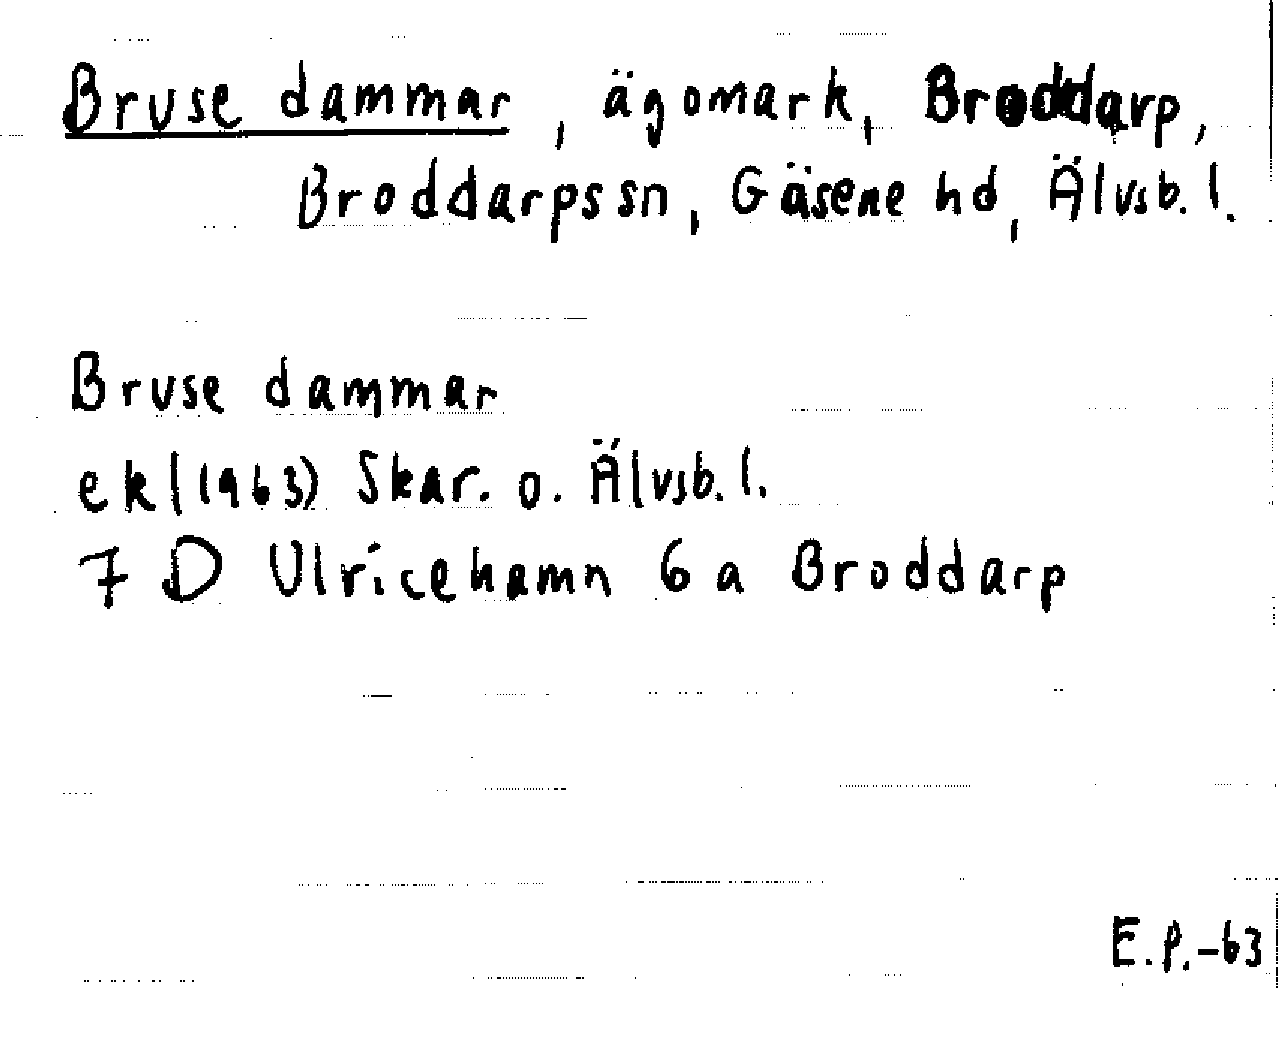 Bruse dammar, ägomark, Broddarp,
Broddarps sn, Gäsene hd, Älvsb. l.
Bruse dammar
ekl (1963) Skar. o. Älvsb. l.
7 D Ulricehamn 6 a Broddarp
E.P.-63